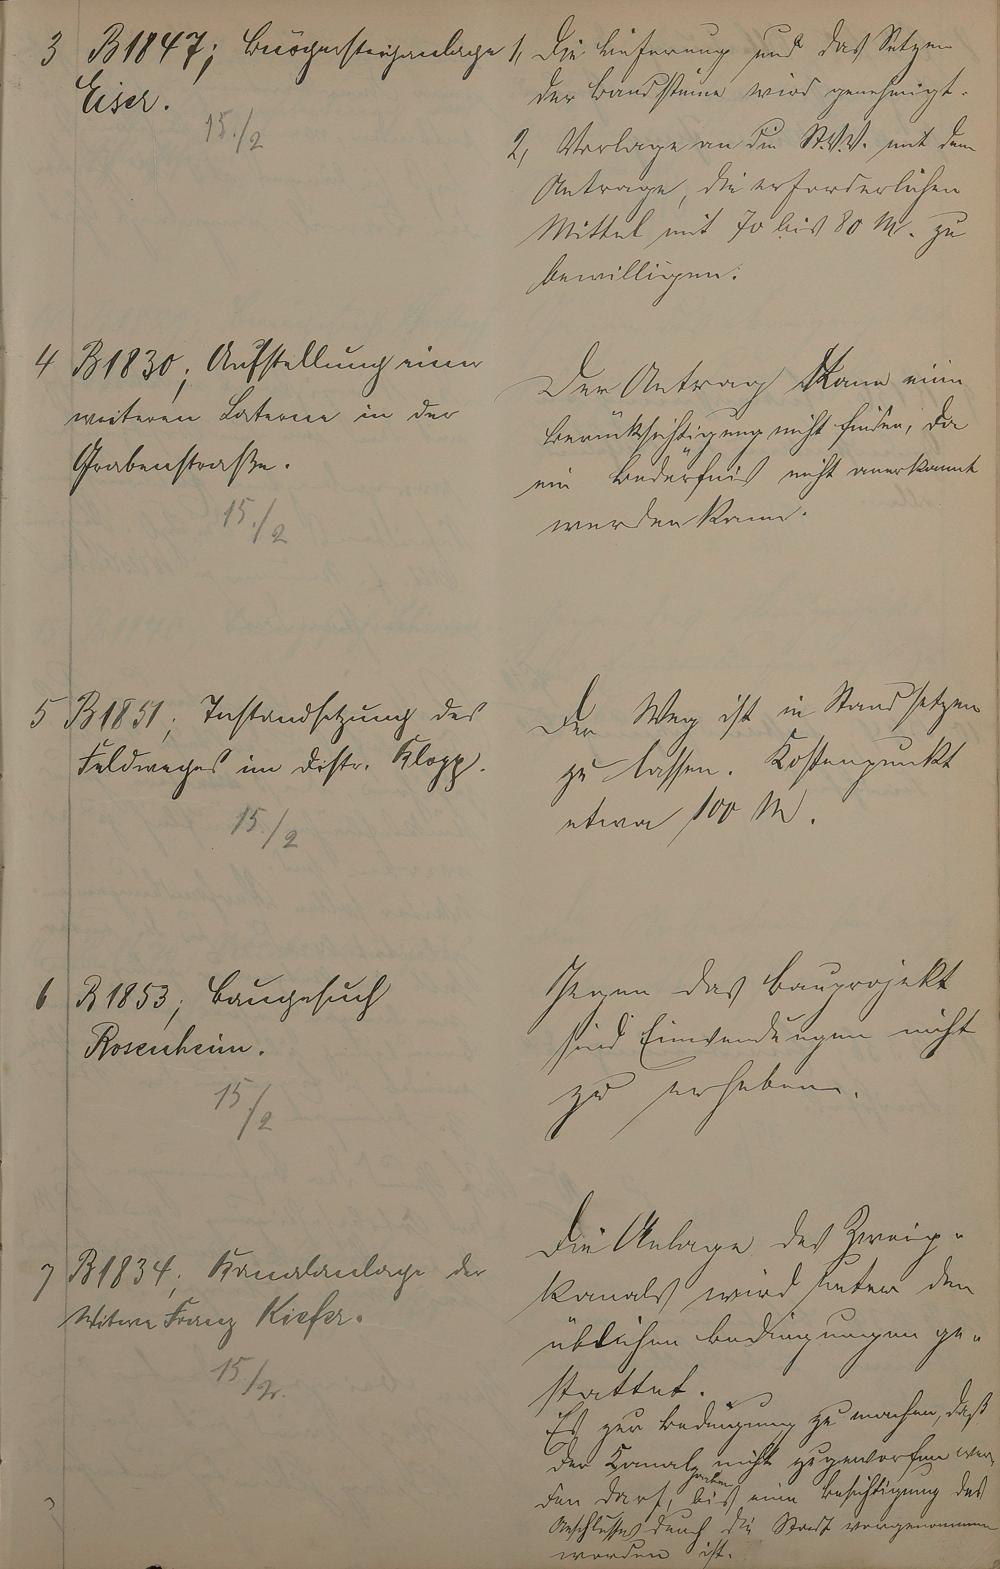 3 B1847; Bürgersteiganlage
Eiser.
15./2
1, Die Lieferung und das Setzen
der Bandsteine wird genehmigt.
2, Vorlage an die St.V.V. mit dem
Antrage, die erforderlichen
Mittel mit 70 bis 80 M. zu
bewilligen.
4 B1830; Aufstellung einer
weiteren Laterne in der
Grabenstraße.
15./2
Der Antrag kann eine
Berücksichtigung nicht finden, da
ein Bedürfnis nicht anerkannt
werden kann.
5 B1851; Instandsetzung des
Feldweges im Distr. Klopp.
15./2
Der Weg ist in Stand setzen
zu lassen. Kostenpunkt
etwa 100 M.
6 B1853; Baugesuch
Rosenheim.
15./2
Gegen das Bauprojekt
sind Einwendungen nicht
zu erheben.
7 B1834; Kanalanlage der
Witwe Franz Kiefer.
15./2.
Die Anlage des Zweig-
kanals wird unter den
üblichen Bedingungen ge-
stattet.
Es zur Bedingung zu machen, daß
der Kanal nicht zugeworfen wer-
den darf, bis eine Besichtigung des
Anschlusses durch die Stadt vorgenommen
worden ist.